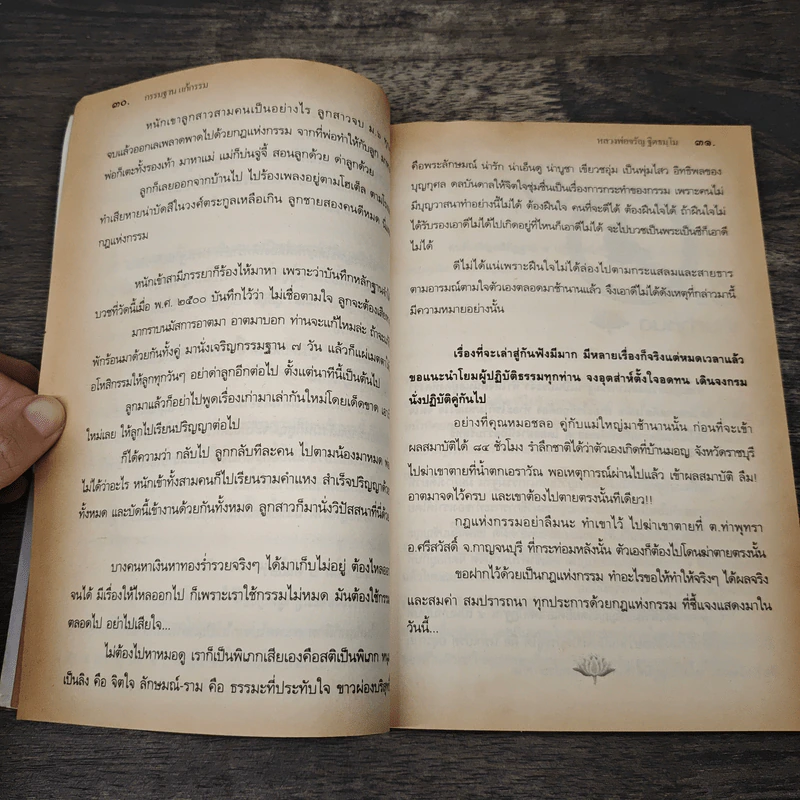 ๓๐. กรรมฐาน แก้กรรม
หนักเขาลูกสาวสามคนเป็นอย่างไร ลูกสาวจบ ม.๖
จบแล้วออกเลเพลาดพาตไปด้วยกฎแห่งกรรม จากที่พ่อทำให้กับลูก
พ่อก็เตะทั้งรองเท้า มาหาแม่ แม่ก็บ่นจู้จี้ สอนลูกด้วย ด่าลูกด้วย
ลูกก็เลยออกจากบ้านไป ไปร้องเพลงอยู่ตามโฮเต็ล ตาม
ทำเสียหายน่าบัดสีในวงศ์ตระกูลเหลือเกิน ลูกชายสองคนดีหมด
กฎแห่งกรรม
หนักเข้าสามีภรรยาก็ร้องไห้มาหา เพราะว่าบันทึกหลักฐาน
บวชที่วัดนี้เมื่อ พ.ศ. ๒๕๐๐ บันทึกไว้ว่า ไม่เชื่อตามใจ ลูกจะต้อง
มากราบนมัสการอาตมา อาตมาบอก ท่านจะแก้ไหมล่ะ ถ้าจะ
พักร้อนมาด้วยกันทั้งคู่ มานั่งเจริญกรรมฐาน ๗ วัน แล้วก็แผ่เมตตา
อโหสิกรรมให้ลูกทุกวันๆ อย่าด่าลูกอีกต่อไป ตั้งแต่นาทีนี้เป็นต้นไป
ลูกมาแล้วก็อย่าไปพูดเรื่องเก่ามาเล่ากันใหม่โดยเด็ดขาด
ใหม่เลย ให้ลูกไปเรียนปริญญาต่อไป
ก็ได้ความว่า กลับไป ลูกกลับทีละคน ไปตามน้องมาหมด
ไม่ได้ว่าอะไร หนักเข้าทั้งสามคนก็ไปเรียนรามคำแหง สำเร็จปริญญา
ทั้งหมด และบัดนี้เข้างานด้วยกันทั้งหมด ลูกสาวก็มานั่งวิปัสสนาที่นี่
บางคนหาเงินหาทองร่ำรวยจริงๆ ได้มาเก็บไม่อยู่ ต้องไหล
จนได้ มีเรื่องให้ไหลออกไป ก็เพราะเราใช้กรรมไม่หมด มันต้องใช้
ตลอดไป อย่าไปเสียใจ...
ไม่ต้องไปหาหมอดู เราก็เป็นพิเภกเสียเองคือสติเป็นพิเภก
เป็นลิง คือ จิตใจ ลักษมณ์-ราม คือ ธรรมะที่ประทับใจ ขาวผ่อง
หลวงพ่อจรัญ ฐิตธมฺโม ๓๑.
คือพระลักษมณ์ น่ารัก น่าเอ็นดู น่าบูชา เขียวชอุ่ม เป็นพุ่มไสว อิทธิพลของ
บุญกุศล ดลบันดาลให้จิตใจชุ่มชื่นเป็นเรื่องการกระทำของกรรม เพราะคนไม่
มีบุญวาสนาทำอย่างนี้ไม่ได้ ต้องฝืนใจ คนที่จะดีได้ ต้องฝืนใจได้ ถ้าฝืนใจไม่
ได้รับรองเอาดีไม่ได้ไปเกิดอยู่ที่ไหนก็เอาดีไม่ได้ จะไปบวชเป็นพระเป็นชีก็เอาดี
ไม่ได้
ดีไม่ได้แน่เพราะฝืนใจไม่ได้ล่องไปตามกระแสลมและสายธาร
ตามอารมณ์ตามใจตัวเองตลอดมาช้านานแล้ว จึงเอาดีไม่ได้ดังเหตุที่กล่าวมานี้
มีความหมายอย่างนั้น
เรื่องที่จะเล่าสู่กันฟังมีมาก มีหลายเรื่องก็จริงแต่หมดเวลาแล้ว
ขอแนะนำโยมผู้ปฏิบัติธรรมทุกท่าน จงอุตส่าห์ตั้งใจอดทน เดินจงกรม
นั่งปฏิบัติคู่กันไป
อย่างที่คุณหมอชลอ คู่กับแม่ใหญ่มาช้านานนั้น ก่อนที่จะเข้า
ผลสมาบัติได้ ๘๔ ชั่วโมง รำลึกชาติได้ว่าตัวเองเกิดที่บ้านมอญ จังหวัดราชบุรี
ไปฆ่าเขาตายที่น้ำตกเอราวัณ พอเหตุการณ์ผ่านไปแล้ว เข้าผลสมาบัติ ลืม!
อาตมาจดไว้ครบ และเขาต้องไปตายตรงนั้นทีเดียว!!
กฎแห่งกรรมอย่าลืมนะ ทำเขาไว้ ไปฆ่าเขาตายที่ ต.ท่าพุทรา
อ.ศรีสวัสดิ์ จ.กาญจนบุรี ที่กระท่อมหลังนั้น ตัวเองก็ต้องไปโดนฆ่าตายตรงนั้น
ขอฝากไว้ด้วยเป็นกฎแห่งกรรม ทำอะไรขอให้ทำให้จริงๆ ได้ผลจริง
และสมค่า สมปรารถนา ทุกประการด้วยกฎแห่งกรรม ที่ชี้แจงแสดงมาใน
วันนี้...